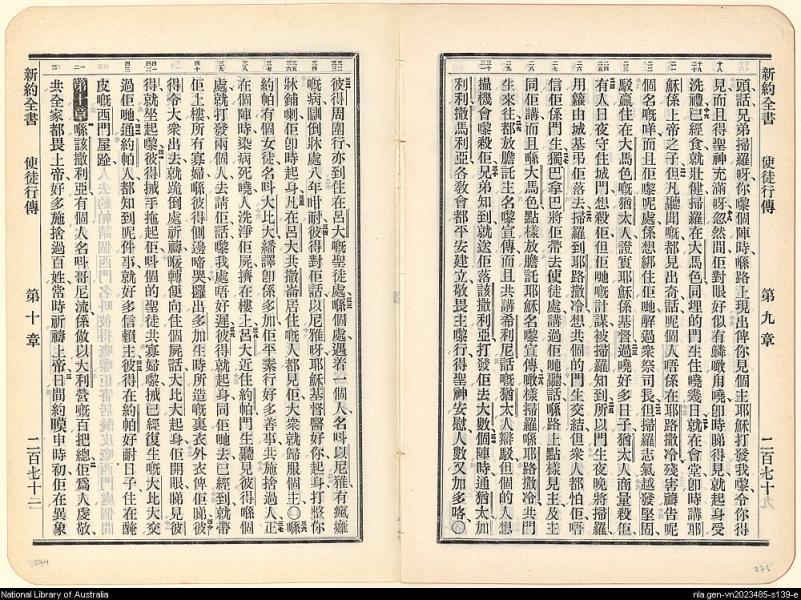 新約全書 使徒行傳 第九章 二百七十
頭話兄弟掃羅呀你嚟個陣時喺路上現出俾你見個主耶穌打發我嚟令你得
見而且得聖神充滿呀忽然間佢對眼好似有鱗噉甪曉卽時睇得見就起身受
洗禮已經食就壯健掃羅在大馬色同埋的門生住曉幾日就在會堂卽時講耶
穌係上帝之子但凡聽聞嘅都見出奇話呢個人唔係在耶路撒冷殘害禱告呢
個名嘅咩而且佢嚟呢處係想綁住佢哋解過衆祭司長但掃羅志氣越發堅固
駁贏住在大馬色嘅猶太人證實耶穌係基督過曉好多日子猶太人商量殺佢
有人日夜守住城門想殺佢但佢哋嘅計謀被掃羅知到所以門生夜晚將掃羅
用籮由城基弔佢落去掃羅到耶路撒冷想共個的門生交結但衆人都怕佢唔
信佢係門生獨巴拿巴將佢帶去使徒處講過佢哋聽話喺路上點樣見主及主
同佢講而且喺大馬色點樣放膽託耶穌名嚟宣傳噉樣掃羅喺耶路撒冷共門
生來往都放膽託主名嚟宣傳而且共講希利尼話嘅猶太人辯駁但個的人想
搵機會嚟殺佢兄弟知到就送佢落該撒利亞打發佢去大數個陣時通猶太加
利利撒馬利亞各敎會都平安建立敬畏主嚟行得聖神安慰人數又加多咯〇
彼得周圍行亦到住在呂大嘅聖徒處喺個處遇着一個人名呌以尼雅有瘋癱
嘅病瞓倒牀處八年咁耐彼得對佢話以尼雅呀耶穌基督醫好你起身打叠你
牀鋪喇佢卽時起身凡在呂大共撒崙居住嘅人都見佢大衆就歸服個主〇喺
約帕有個女徒名呌大比大繙譯卽係多加佢平素行好多善事共施捨過人正
在個陣時染病死曉人洗淨佢屍擠在樓上呂大近住約帕門生聽見彼得喺個
處就打發兩個人去請佢話嚟我處唔好遲彼得就起身同佢哋去已經到就帶
佢上樓所有寡婦喺彼得側邊啼哭攞出多加生時所造嘅裏衣外衣俾佢睇彼
得令大衆出去就跪倒處祈禱𠺘轉便向住個屍話大比大起身佢開眼睇見彼
得就坐起嚟彼得掝手拖起佢呌個的聖徒共寡婦嚟掝已經復生嘅大比大交
過佢哋通約帕人都知到呢件事就好多信賴主彼得在約帕好耐日子住在硝
皮嘅西門屋𨂾
第十章 喺該撒利亞有個人名呌哥尼流係做以大利營嘅百把總佢爲人虔敬
共全家都畏上帝好多施捨過百姓常時祈禱上帝日間約嘆申時初佢在異象
新約全書 使徒行傳 第十章 二百七十二
274
273
National Library of Australia
nla.gen-vn2023485-s139-e